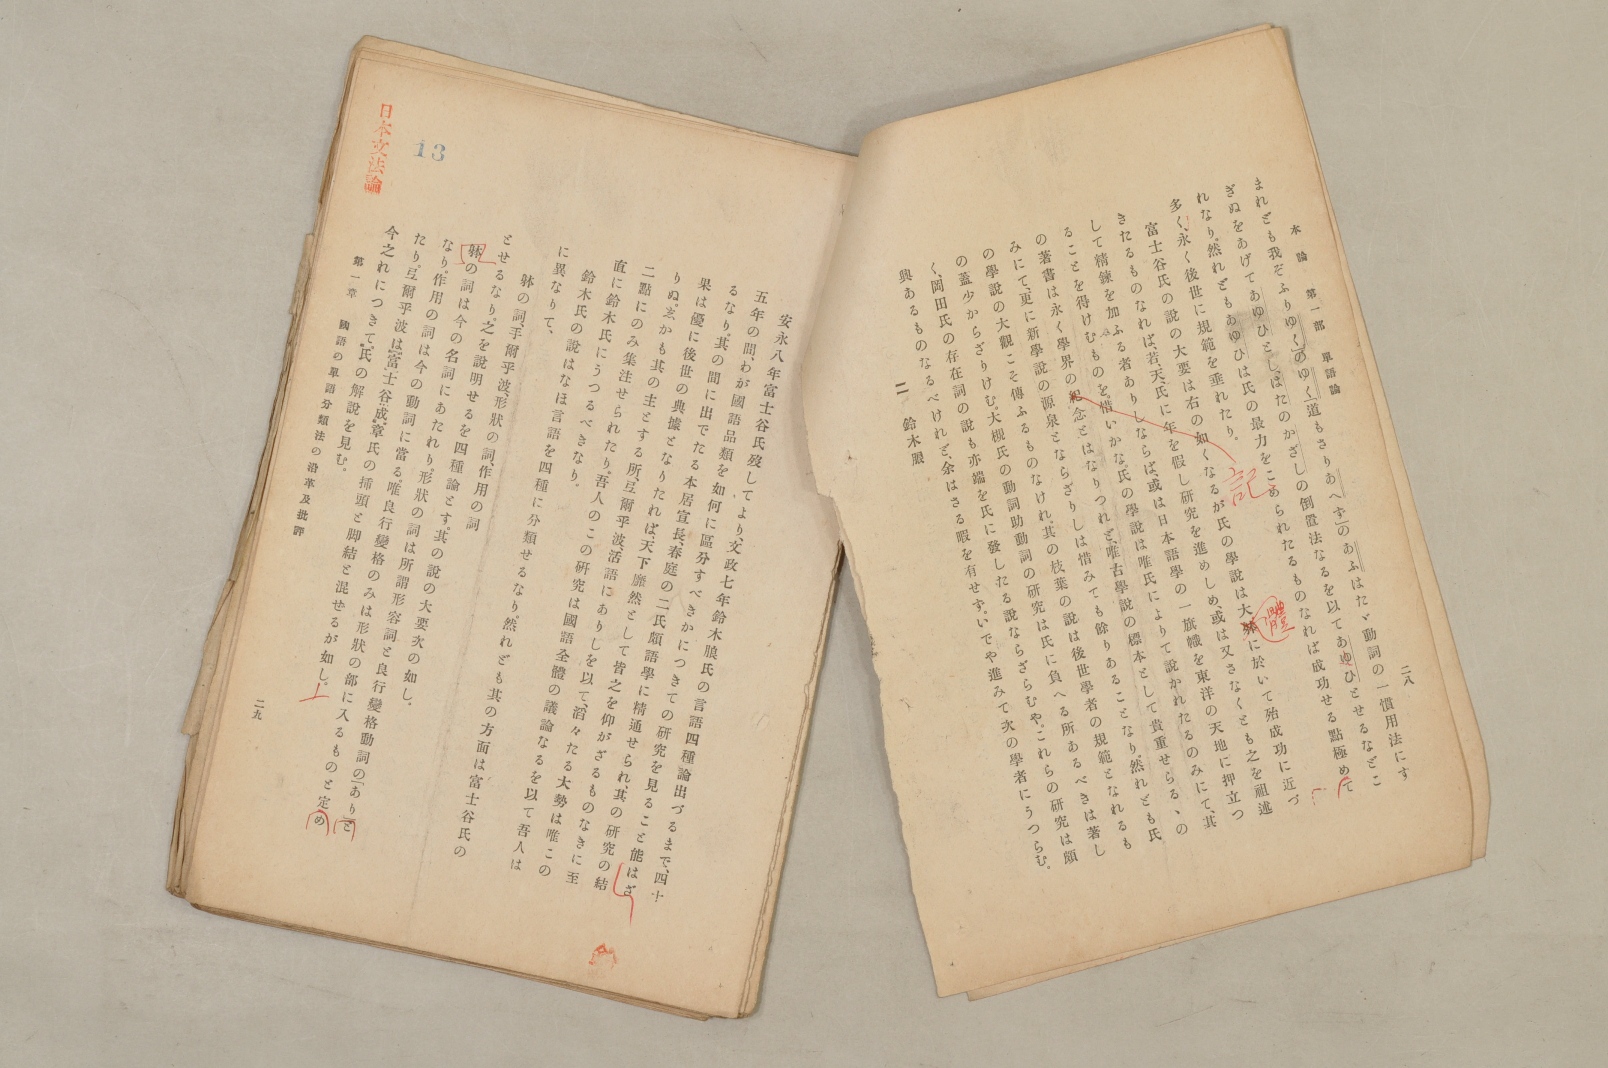 本論 第一部 單語論
二八
まれども我ぞふりゆく」のゆく」道もさりあへず」のあふはたゞ動詞の一慣用法にす
ぎぬをあげてあゆひとし、はたのかざしの倒置法なるを以てあゆひとせるなどこ
れなり。然れどもあゆひは氏の最力をこめられたるものなれば成功せる點極めて
多く、永く後世に規範を垂れたり。
富士谷氏の說の大要は右の如くなるが氏の學說は大躰に於いて殆成功に近づ
きたるものなれば、若、天、氏に年を假し研究を進めしめ、或は又さなくとも之を祖述
して精鍊を加ふる者ありしならば、或は日本語學の一旗幟を東洋の天地に押立つ
ることを得けむものを、惜いかな、氏の學說は唯氏によりて說かれたるのみにて、其
の著書は永く學界の紀念とはなりつれど、唯古學說の標本として貴重せらるゝの
みにて、更に新學說の源泉とならざりしは惜みても餘りあることなり。然れども氏
の學說の大觀こそ傳ふるものなけれ、其の枝葉の說は後世學者の規範となれるも
の蓋少からざりけむ。大槻氏の動詞助動詞の硏究は氏に負へる所あるべきは著し
く、岡田氏の存在詞の說も亦端を氏に發したる說ならざらむや。これらの硏究は頗
興あるものなるべけれど、余はさる暇を有せず。いでや進みて次の學者にうつらむ。
二 鈴木朖
記
體
安永八年富士谷氏歿してより、文政七年鈴木朖氏の言語四種論出づるまで、四十
五年の間、わが國語品類を如何に區分すべきかにつきての硏究を見ること能はざ
るなり。其の間に出でたる本居宣長、春庭の二氏頗語學に精通せられ、其の硏究の結
果は優に後世の典據となりたれば、天下靡然として皆之を仰がざるものなきに至
りぬ。しかも其の主とする所、弖爾乎波、活語にありしを以て、滔々たる大勢は唯この
二點にのみ集注せられたり。吾人のこの硏究は國語全體の議論なるを以て吾人は
直に鈴木氏にうつるべきなり。
鈴木氏の說はなほ言語を四種に分類せるなり。然れども其の方面は富士谷氏の
に異なりて、
躰の詞、手爾乎波、形狀の詞、作用の詞
とせるなり。之を說明せるを四種論とす。其の說の大要次の如し。
躰の詞は今の名詞にあたれり。形狀の詞は所謂形容詞と良行變格動詞の「あり」と
なり。作用の詞は今の動詞に當る。唯良行變格のみは形狀の部に入るものと定め
たり。弖爾乎波は富士谷成章氏の揷頭と脚結と混せるが如し。
今之れにつきて、氏の解說を見む。
第一章 國語の單語分類法の沿革及批評
二九
13
日本文法論